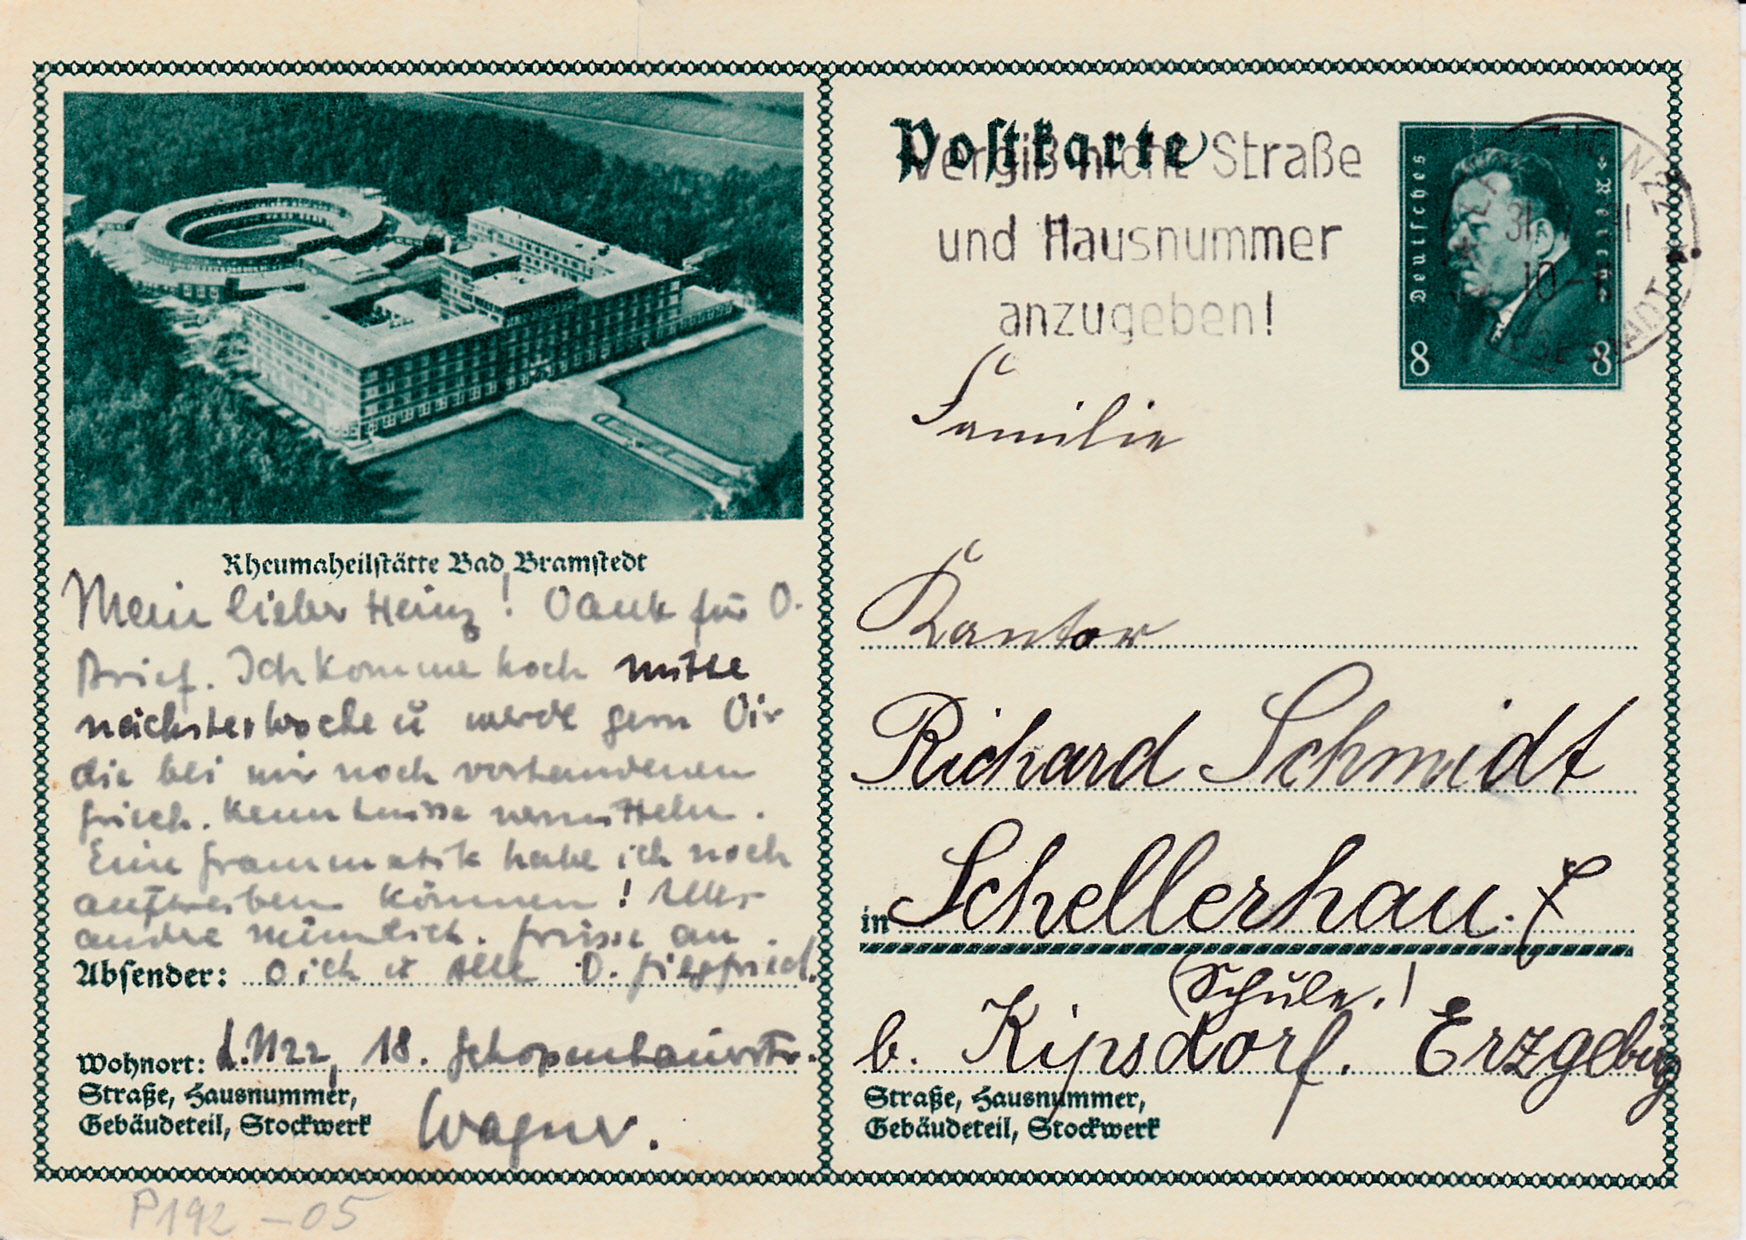 Rheumaheilstätte Bad Bramstedt
Mein lieber Heinz! Dank für D.
Brief. Ich komme hoch mitte
nächster Woche u werde gern Dir
die bei mir noch vorhandenen
griech. Kenntnisse vermitteln.
Eine Grammatik habe ich noch
auftreiben können! Alles
andre mündlich. Grüsse an
Absender: Dich u Alle D. Siegfried.
Wohnort: L. N22, 18. Schopenhauerstr.
Straße, Hausnummer,
Gebäudeteil, Stockwerk
Wagner.
P192-05
Postkarte
Vergiß nicht Straße
und Hausnummer
anzugeben!
Deutsches Reich
8 8
31
10-
Familie
Kantor
Richard Schmidt
in Schellerhau.
(Schule.)
b. Kipsdorf. Erzgebirg
Straße, Hausnummer,
Gebäudeteil, Stockwerk